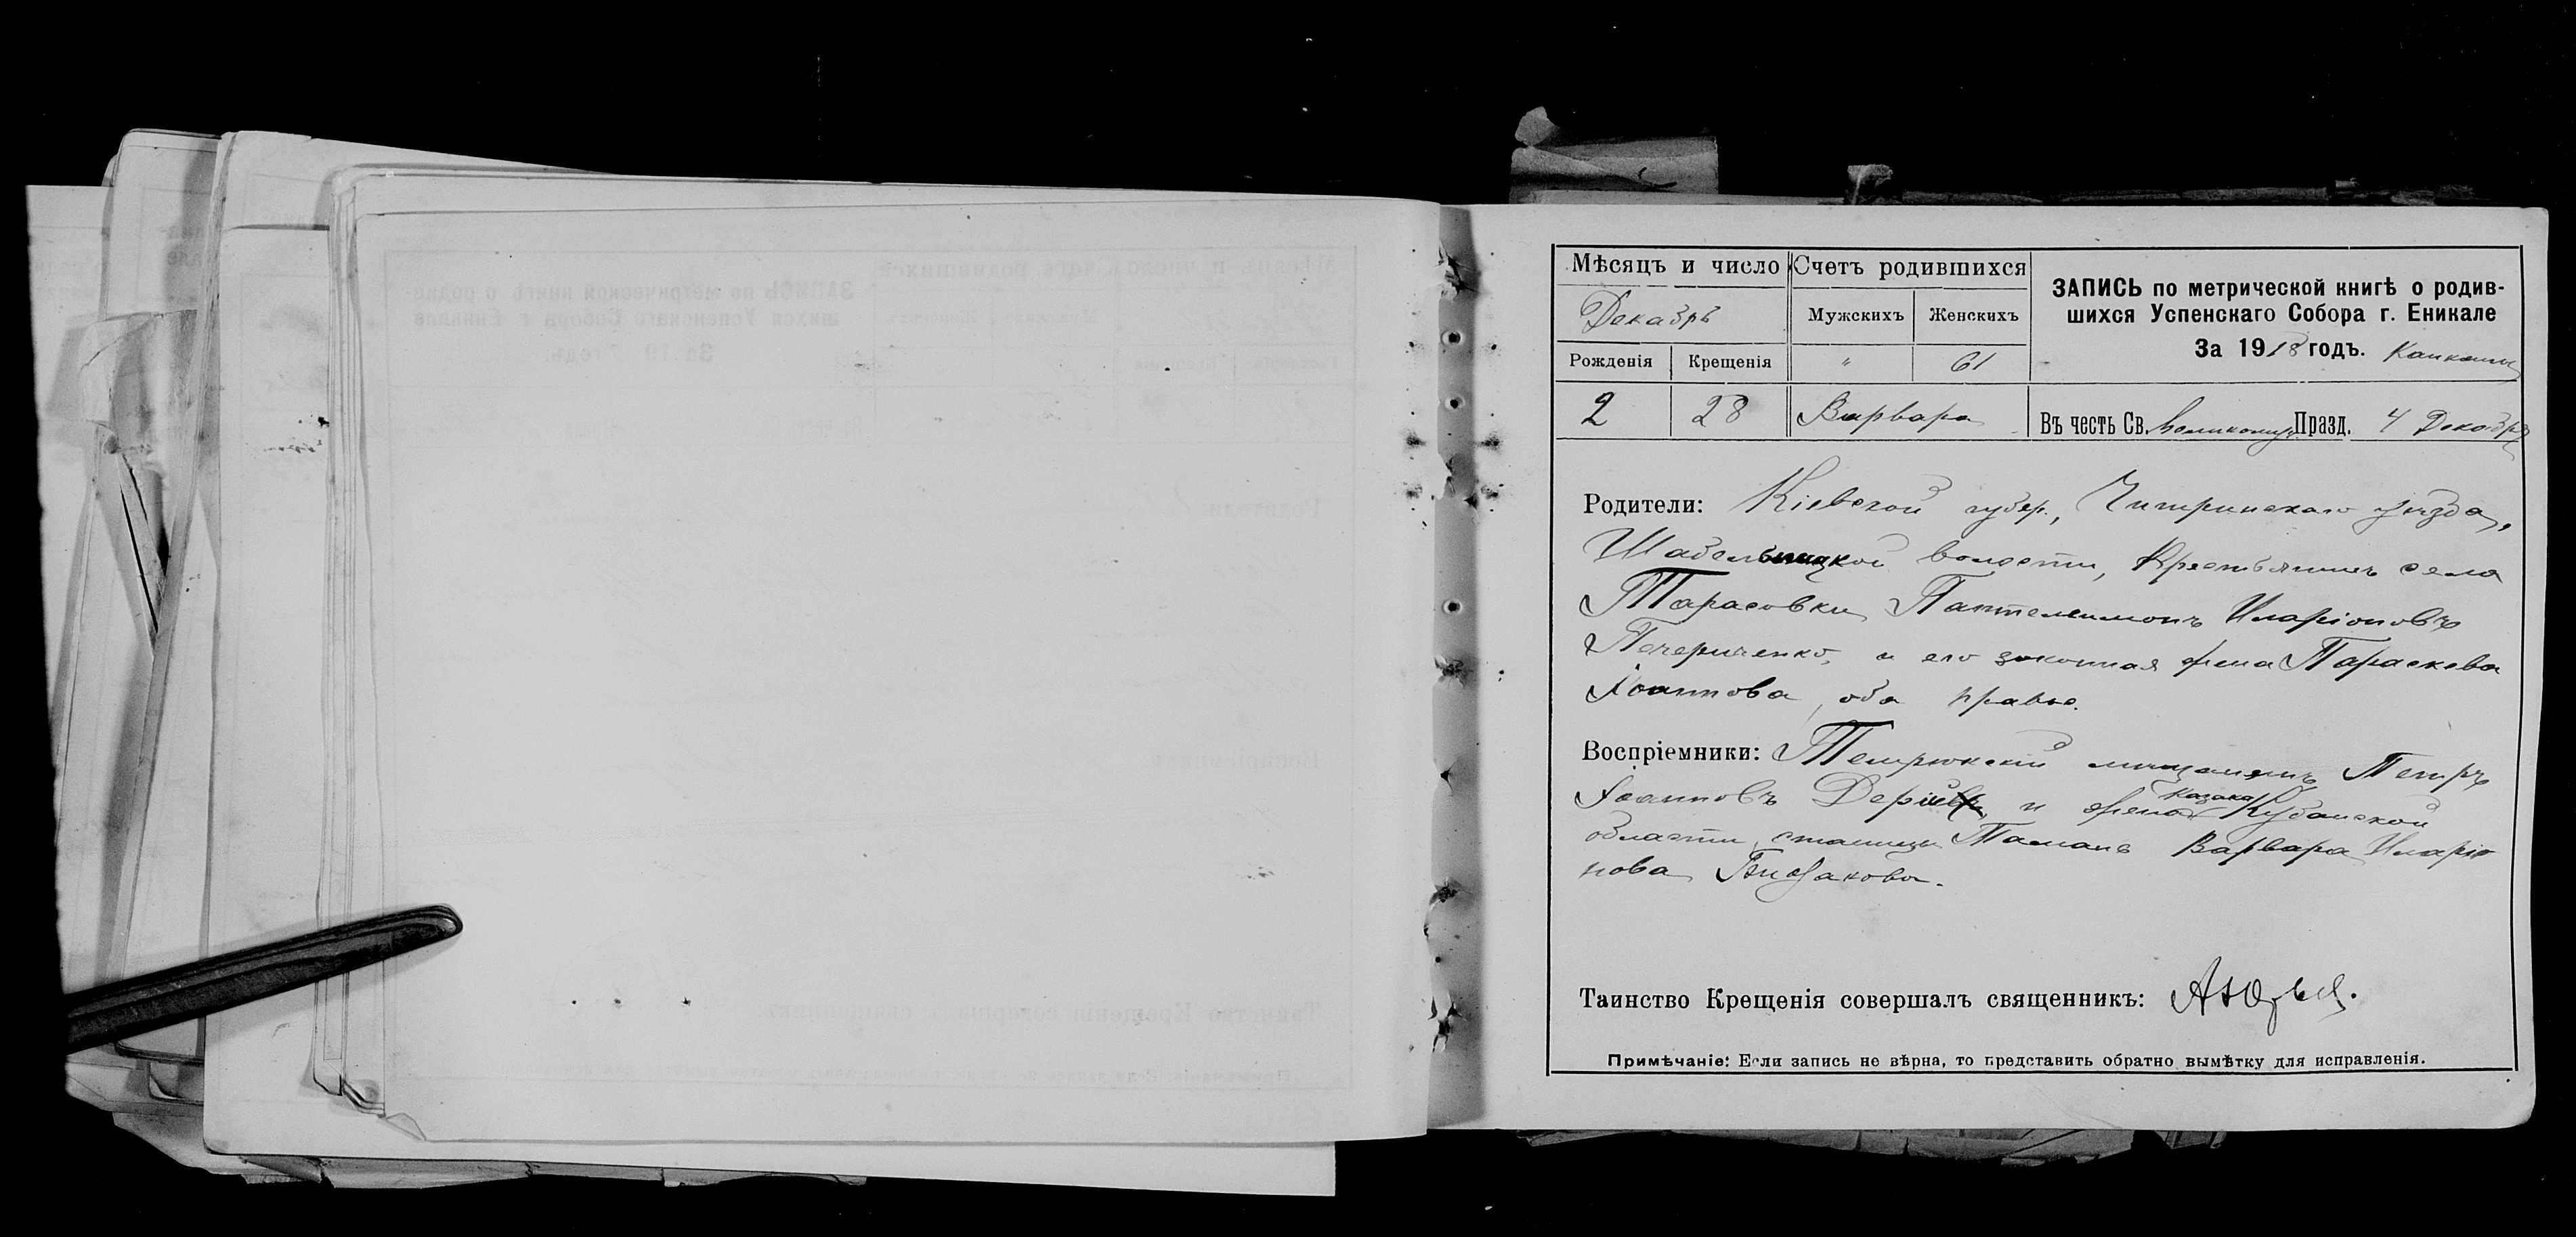 Мѣсяцъ и число
Счетъ родившихся
ЗАПИСЬ по метрической книгѣ о родив-
шихся Успенскаго Собора г. Еникале
Декабрь
Мужскихъ
Женскихъ
За 1918 годъ.
Рожденія
Крещенія
"
61
2
28
Варвара
Въ честь Св. Великомуч. Празд. 4 Декабря
Родители: Кіевской губер., Чигринскаго уѣзда,
Шабельницкой волости, Крестьянинъ села
Тарасовки Пантелеимонъ Иларіоновъ
Печериченко, и его законная жена Параскева
Іоаннова, оба правос.
Воспріемники: Темрюкскій мѣщанинъ Петръ
Іоанновъ и жена казака Кубанской
области, станицы Тамань Варвара Иларіо
нова
Таинство Крещенія совершалъ священникъ:
Примѣчаніе: Если запись не вѣрна, то представить обратно вымѣтку для исправленія.